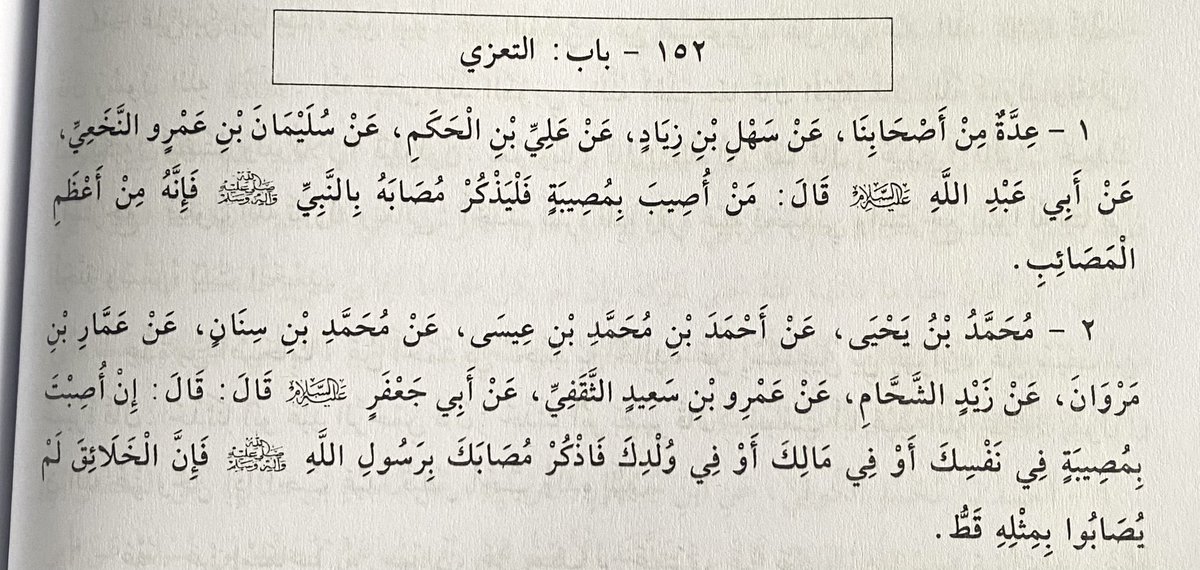 ١٥٢ - باب: التعزي
١ - عِدَّةٌ مِنْ أَصْحَابِنَا، عَنْ سَهْلِ بْنِ زِيَادٍ، عَنْ عَلِيِّ بْنِ الْحَكَمِ، عَنْ سُلَيْمَانَ بْنِ عَمْرٍو النَّخَعِيِّ،
عَنْ أَبِي عَبْدِ اللَّهِ عَلَيْهِ السَّلَامُ قَالَ: مَنْ أُصِيبَ بِمُصِيبَةٍ فَلْيَذْكُرْ مُصَابَهُ بِالنَّبِيِّ صَلَّى اللَّهُ عَلَيْهِ وَآلِهِ وَسَلَّمَ فَإِنَّهُ مِنْ أَعْظَمِ
الْمَصَائِبِ.
٢ - مُحَمَّدُ بْنُ يَحْيَى، عَنْ أَحْمَدَ بْنِ مُحَمَّدِ بْنِ عِيسَى، عَنْ مُحَمَّدِ بْنِ سِنَانٍ، عَنْ عَمَّارِ بْنِ
مَرْوَانَ، عَنْ زَيْدٍ الشَّحَّامِ، عَنْ عَمْرِو بْنِ سَعِيدٍ الثَّقَفِيِّ، عَنْ أَبِي جَعْفَرٍ عَلَيْهِ السَّلَامُ قَالَ: قَالَ: إِنْ أُصِبْتَ
بِمُصِيبَةٍ فِي نَفْسِكَ أَوْ فِي مَالِكَ أَوْ فِي وُلْدِكَ فَاذْكُرْ مُصَابَكَ بِرَسُولِ اللَّهِ صَلَّى اللَّهُ عَلَيْهِ وَآلِهِ وَسَلَّمَ فَإِنَّ الْخَلَائِقَ لَمْ
يُصَابُوا بِمِثْلِهِ قَطُّ.